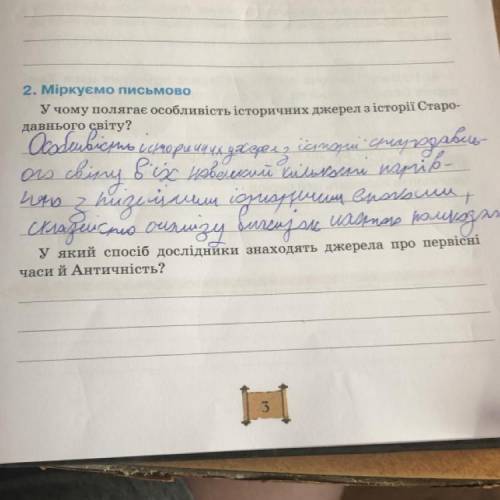 2. Міркуємо письмово
У чому полягає особливість історичних джерел з історії Старо-
давнього світу?
Особливість історичних джерел з історії стародавнь-
ого світу в їх невеликій кількості порів-
няно з пізнішими історичними епохами,
складністю аналізу
У який спосіб дослідники знаходять джерела про первісні
часи й Античність?
3